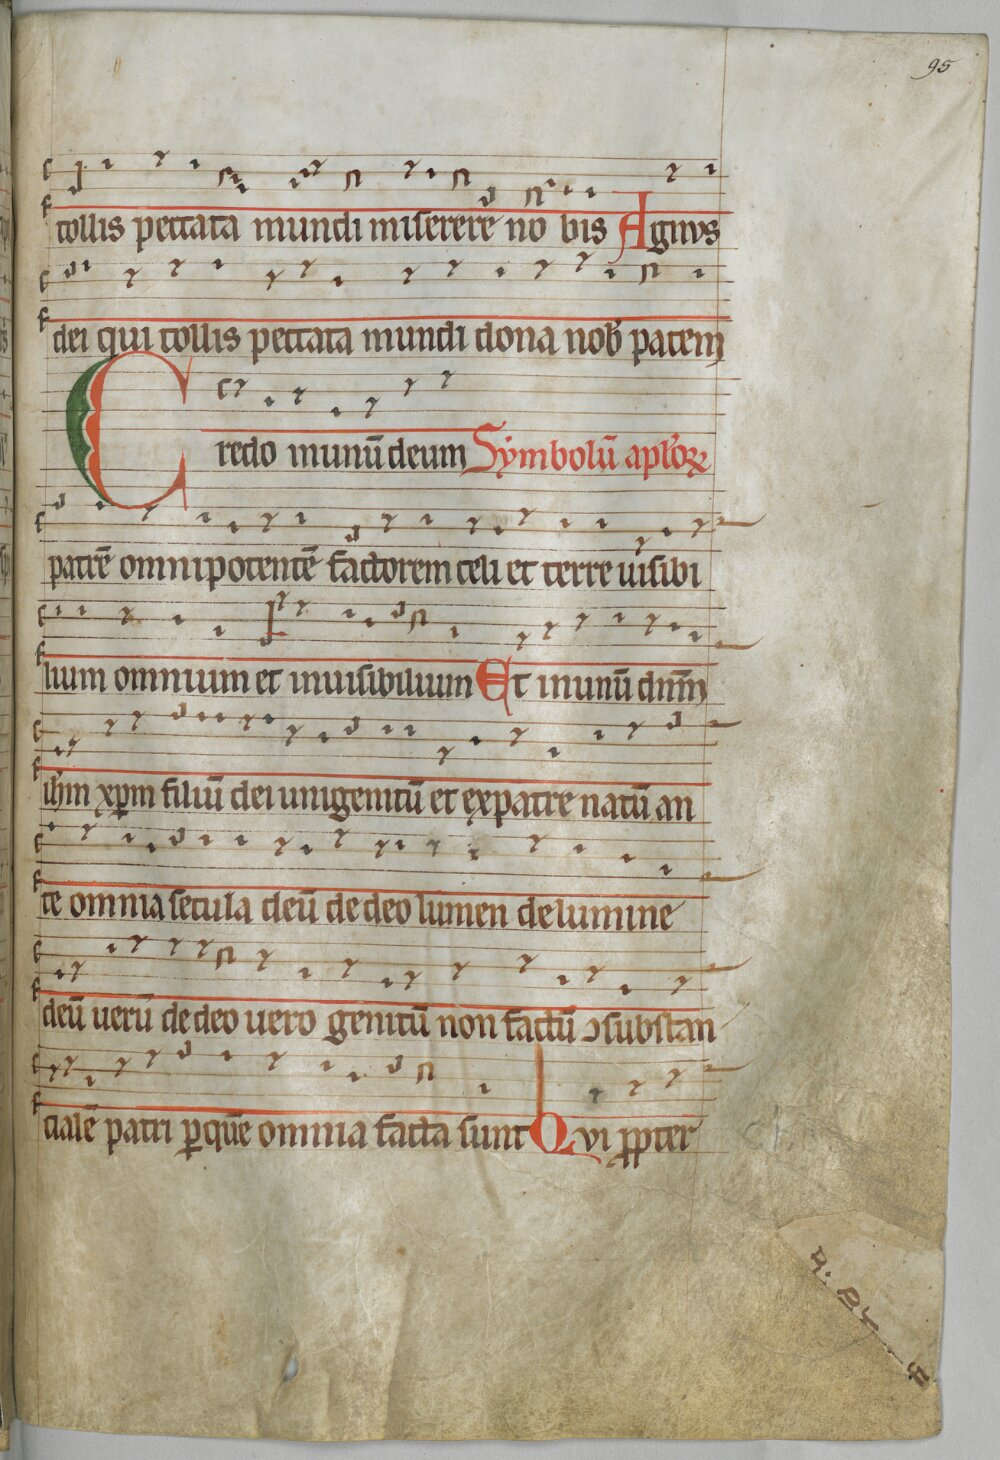 95
tollis peccata mundi miserere no bis Agnus
dei qui tollis peccata mundi dona nob̄ pacem
Credo inunū deum Symbolū apl'oꝝ
patrē omnipotentē factorem celi et terre uisibi
lium omnium et inuisibilium Et inunū dn̄m
ihm̄ xp̄m filiū dei unigenitū et expatre natū an
te omnia secula deū de deo lumen de lumine
deū uerū de deo uero genitū non factū ɔsubstan
cialē patri ꝑquē omnia facta sunt Qui ꝓpter